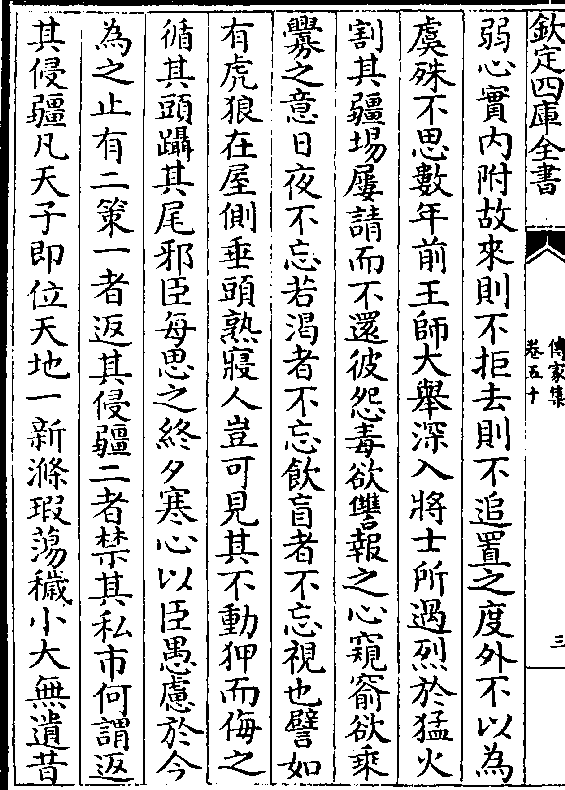 欽定四庫全書
傳家集
卷五十
三
弱心實内附故來則不拒去則不追置之度外不以為
虞殊不思數年前王師大舉深入將士所過烈於猛火
割其疆場屢請而不還彼怨毒欲讐報之心窺窬欲乘
釁之意日夜不忘若渴者不忘飲盲者不忘視也譬如
有虎狼在屋側垂頭熟寢人豈可見其不動狎而侮之
循其頭躡其尾邪臣每思之終夕寒心以臣愚慮於今
為之止有二策一者返其侵疆二者禁其私市何謂返
其侵疆凡天子即位天地一新滌瑕蕩穢小大無遺昔